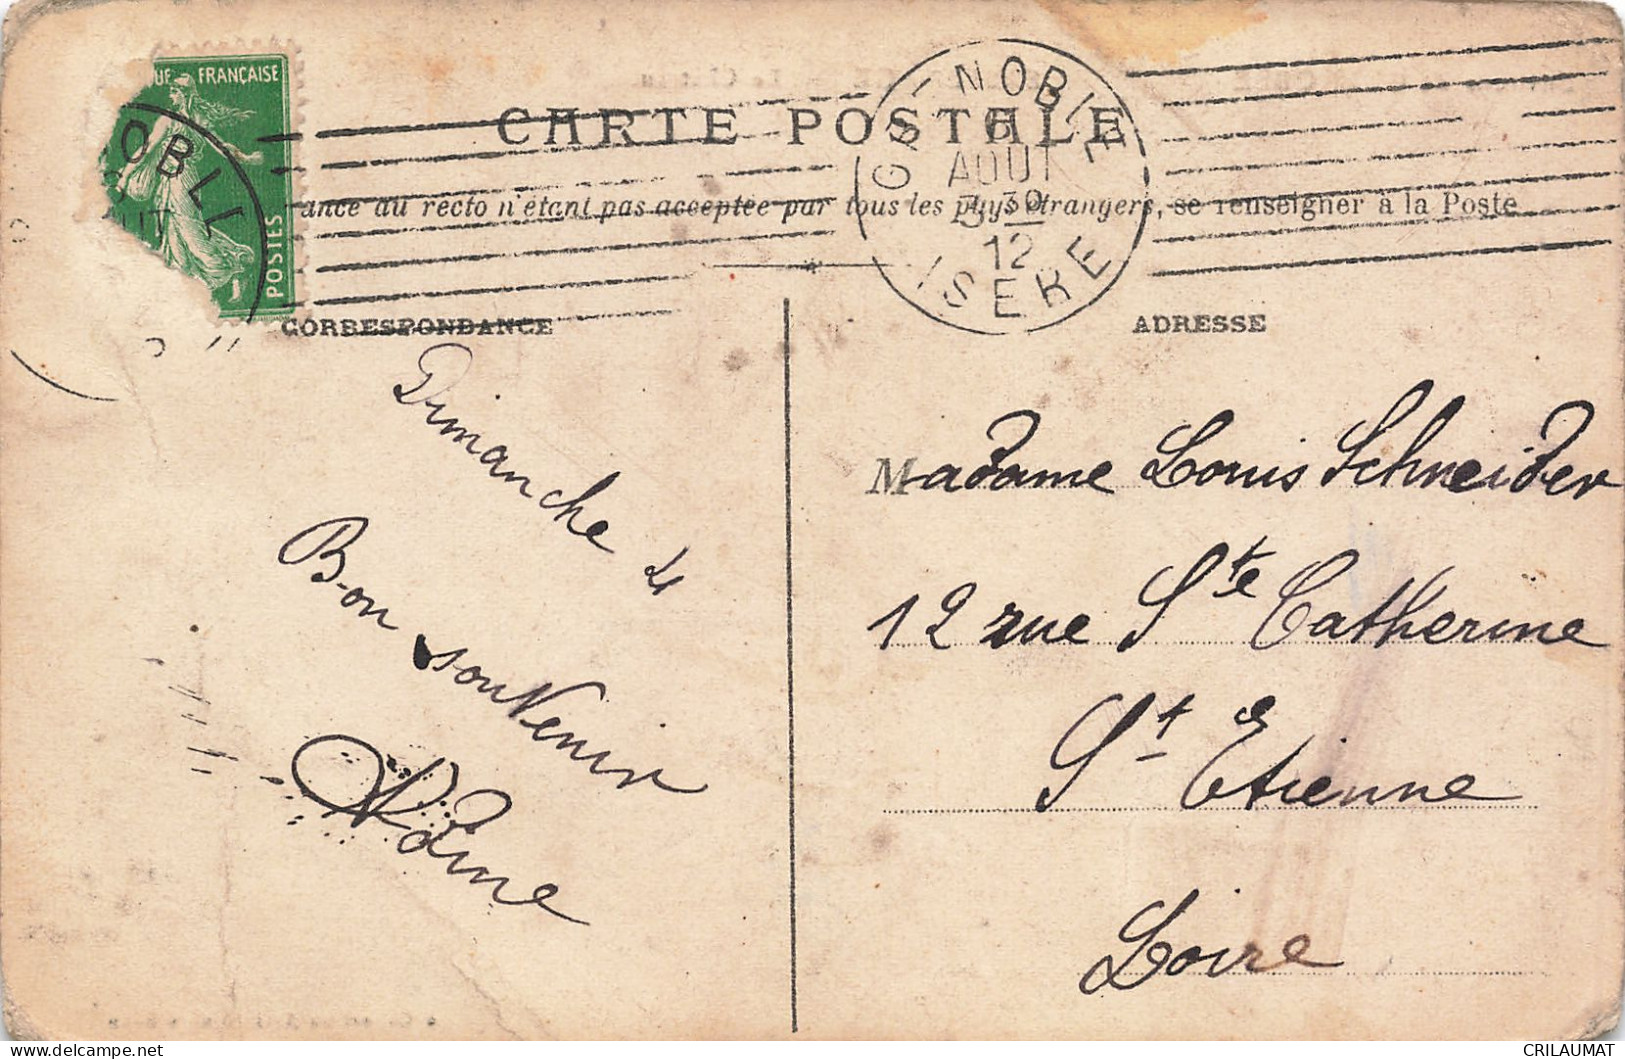 UE FRANÇAISE
POSTES
OBLE
CARTE POSTALE
GRENOBLE
6
AOUT
12
ISERE
ance du recto n'étant pas acceptée par tous les pays étrangers, se renseigner à la Poste
CORRESPONDANCE
ADRESSE
Dimanche 4
Bon souvenir
Madame Louis Schneider
12 rue Ste Catherine
St Etienne
Loire
CRILAUMAT